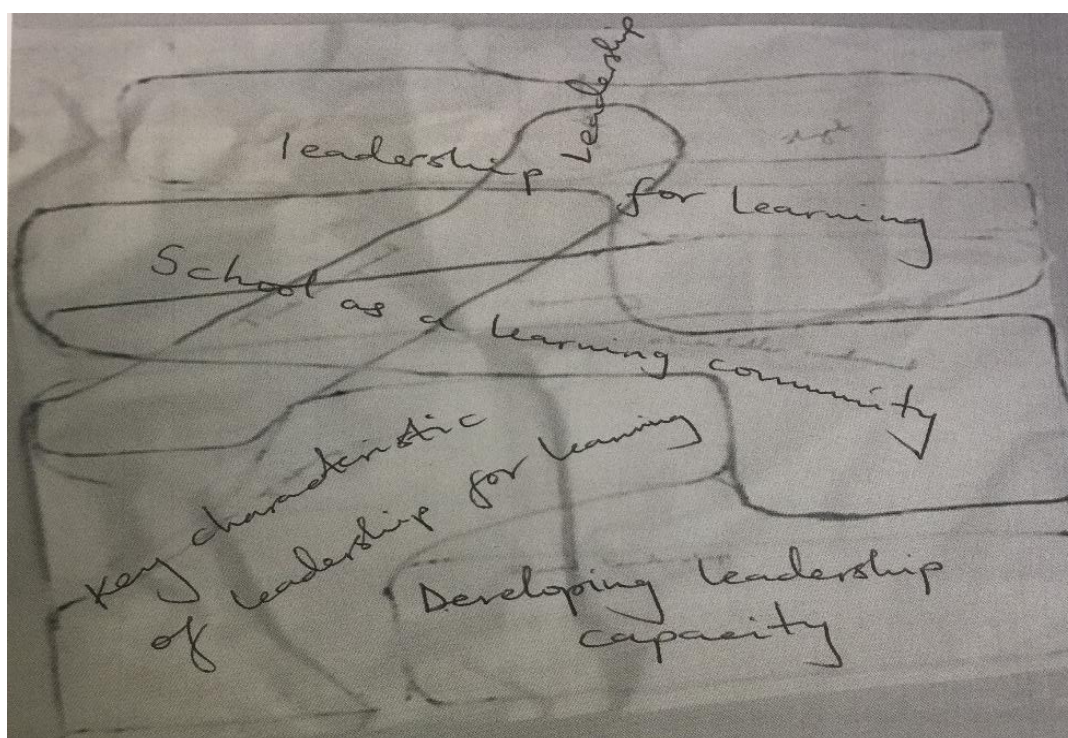 Leadership
leadership for Learning
School as a learning community
Key characteristic
of Leadership for Learning
Developing Leadership
capacity